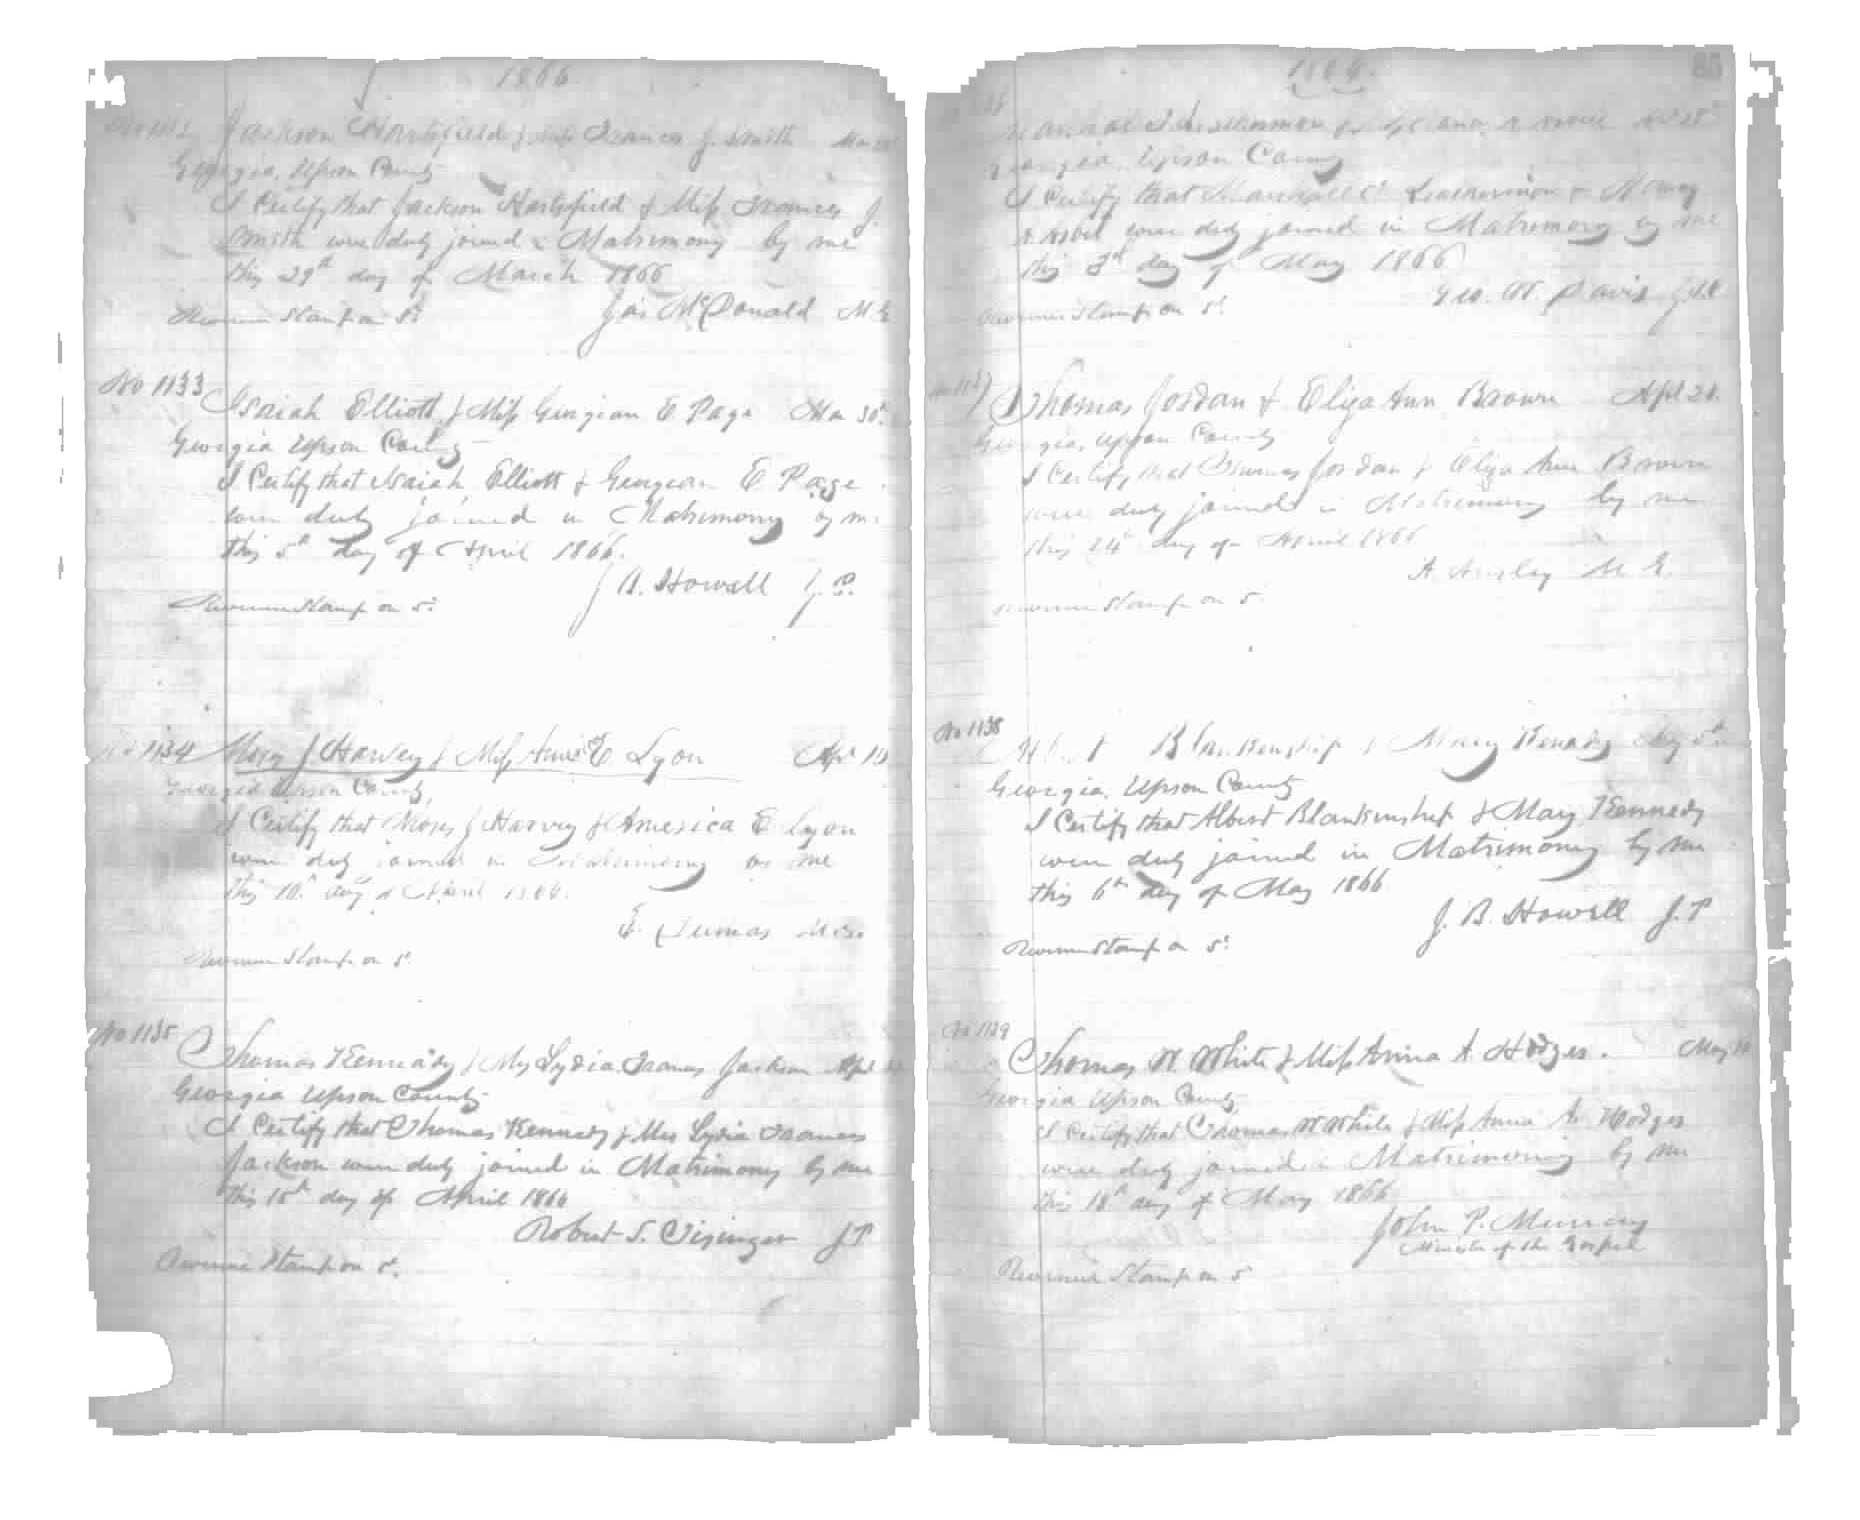 1866
Jackson Hartsfield & Miss Frances J. Smith Mar
Georgia, Upson County
I Certify that Jackson Hartsfield & Miss Frances J.
Smith were duly joined in Matrimony by me
this 29th day of March 1866
Jas McDonald M.G
Revenue Stamp on 5c
No 1133
Isaiah Elliott & Miss Georgian E Page Mar 30th
Georgia Upson County
I Certify that Isaiah Elliott & Georgian E Page
were duly joined in Matrimony by me
this 5th day of April 1866.
J B. Howell J.P.
Revenue Stamp on 5c
No 1134 Moses J Harvey & Miss E Lyon Apr 10
Georgia Upson County
I Certify that Moses J Harvey & America E Lyon
were duly joined in Matrimony by me
this 10th day of April 1866.
E. Dumas
Revenue Stamp on 5c
No 1135
Thomas Kennady & Mrs Lydia Frances Jackson Apr
Georgia Upson County
I Certify that Thomas Kennedy & Mrs Lydia Frances
Jackson were duly joined in Matrimony by me
this 15th day of April 1866
Robert S. Visinger JP
Revenue Stamp on 5c.
1866. 85
Georgia Upson County
I Certify that Leatherman &
were duly joined in Matrimony by me
this 3rd day of May 1866
Geo. W. Davis
Revenue Stamp on 5c
Thomas Jordan & Eliza Ann Brown Apl 21.
Georgia, Upson County
I Certify that Thomas Jordan & Eliza Ann Brown
were duly joined in Matrimony by me
this 24th day of April 1866
A. Ansley M. G.
Revenue Stamp on 5.
No 1138
Blankenship & Mary Kenady May 5th
Georgia, Upson County
I Certify that Albert Blankenship & Mary Kennedy
were duly joined in Matrimony by me
this 6th day of May 1866
J. B. Howell J.P
Revenue Stamp on 5c
No 1139
Thomas W White & Miss Anna A. Hodges. May
Georgia Upson County
I Certify that Thomas W White & Miss Anna A. Hodges
were duly joined in Matrimony by me
this 18th day of May 1866
John P. Murray
Minister of the Gospel
Revenue Stamp on 5